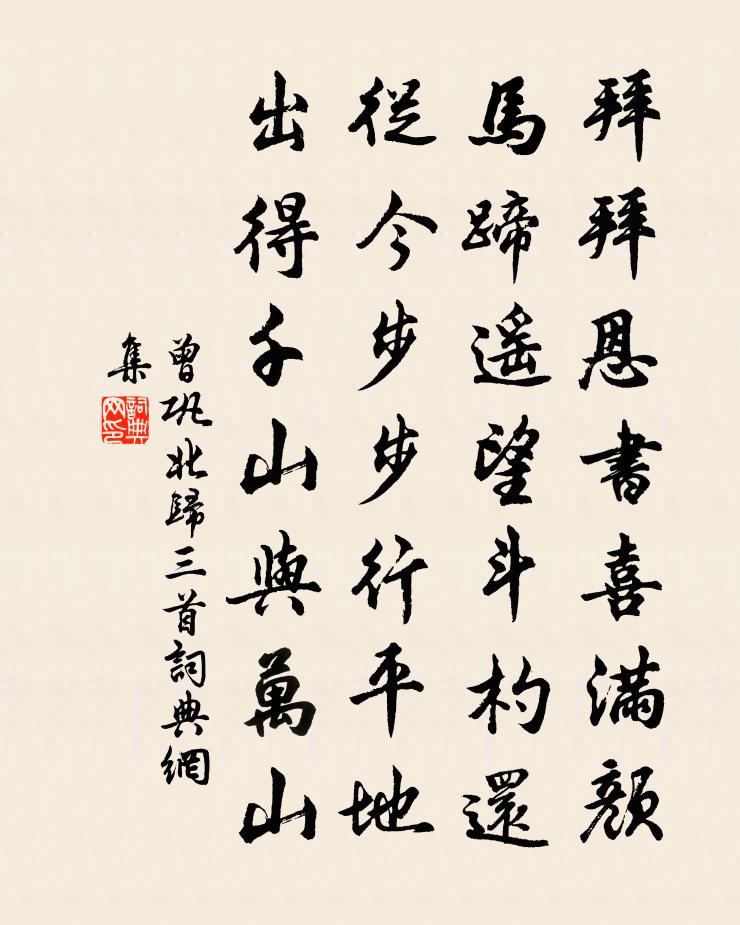 拜拜恩書喜滿顏
馬蹄遥望斗杓還
從今步步行平地
出得千山與萬山
曾巩北歸三首詞典網
集
詞典
网印